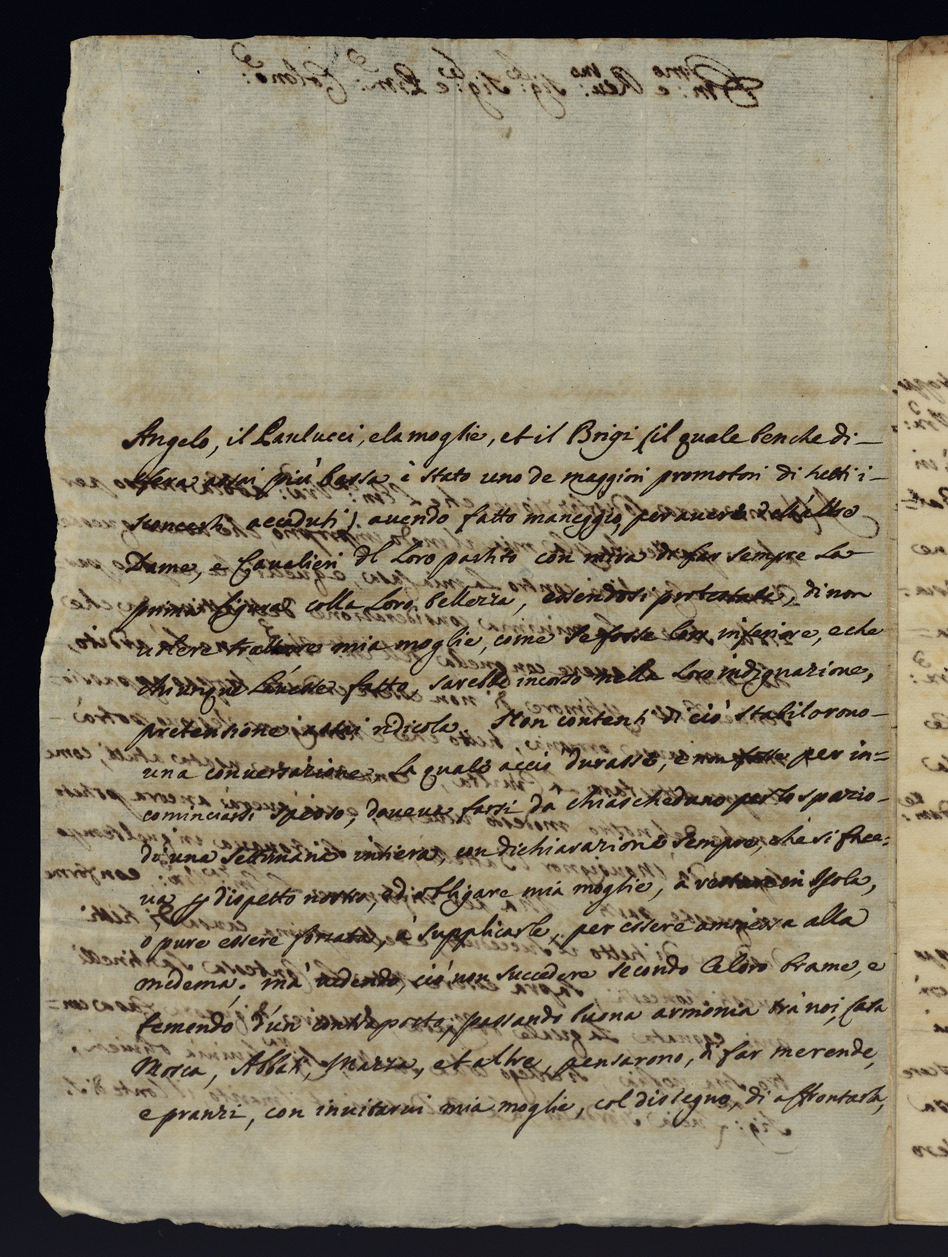 Angelo, il Paulucci, e la moglie, et il Brigi (il quale benche di
sfera assai più bassa è stato uno de maggiori promotori di tutti i
sconcerti accaduti). avendo fatto maneggio per avere dell'altre
Dame, e Cavalieri del Loro partito con mira di far sempre La
prima figura colla Loro bellezza, essendosi protestate, di non
volere trattare mia moglie, come se fosse Loro inferiore, e che
chiunque l'avesse fatto, sarebbe incorso nella Loro indignazione,
pretentione assai ridicola. Non contenti di ciò stabilorono
una conversazione La quale acciò durasse, e non fosse per in=
cominciarsi spesso, doveva farsi da chiascheduno per lo spazio
di una settimana intiera con dichiarazione sempre, che si face=
va p dispetto nostro, ed obligare mia moglie, a restare in Isola,
o pure essere forzata, a supplicarle, per essere ammessa alla
medema. ma vedendo, ciò non succedere secondo Le loro brame, e
temendo d'un contraposto, passando buona armonia trà noi, Casa
Mosca, Abbati, Mazza, et altre, pensarono, di far merende,
e pranzi, con invitarvi mia moglie, col dissegno, di affrontarla,